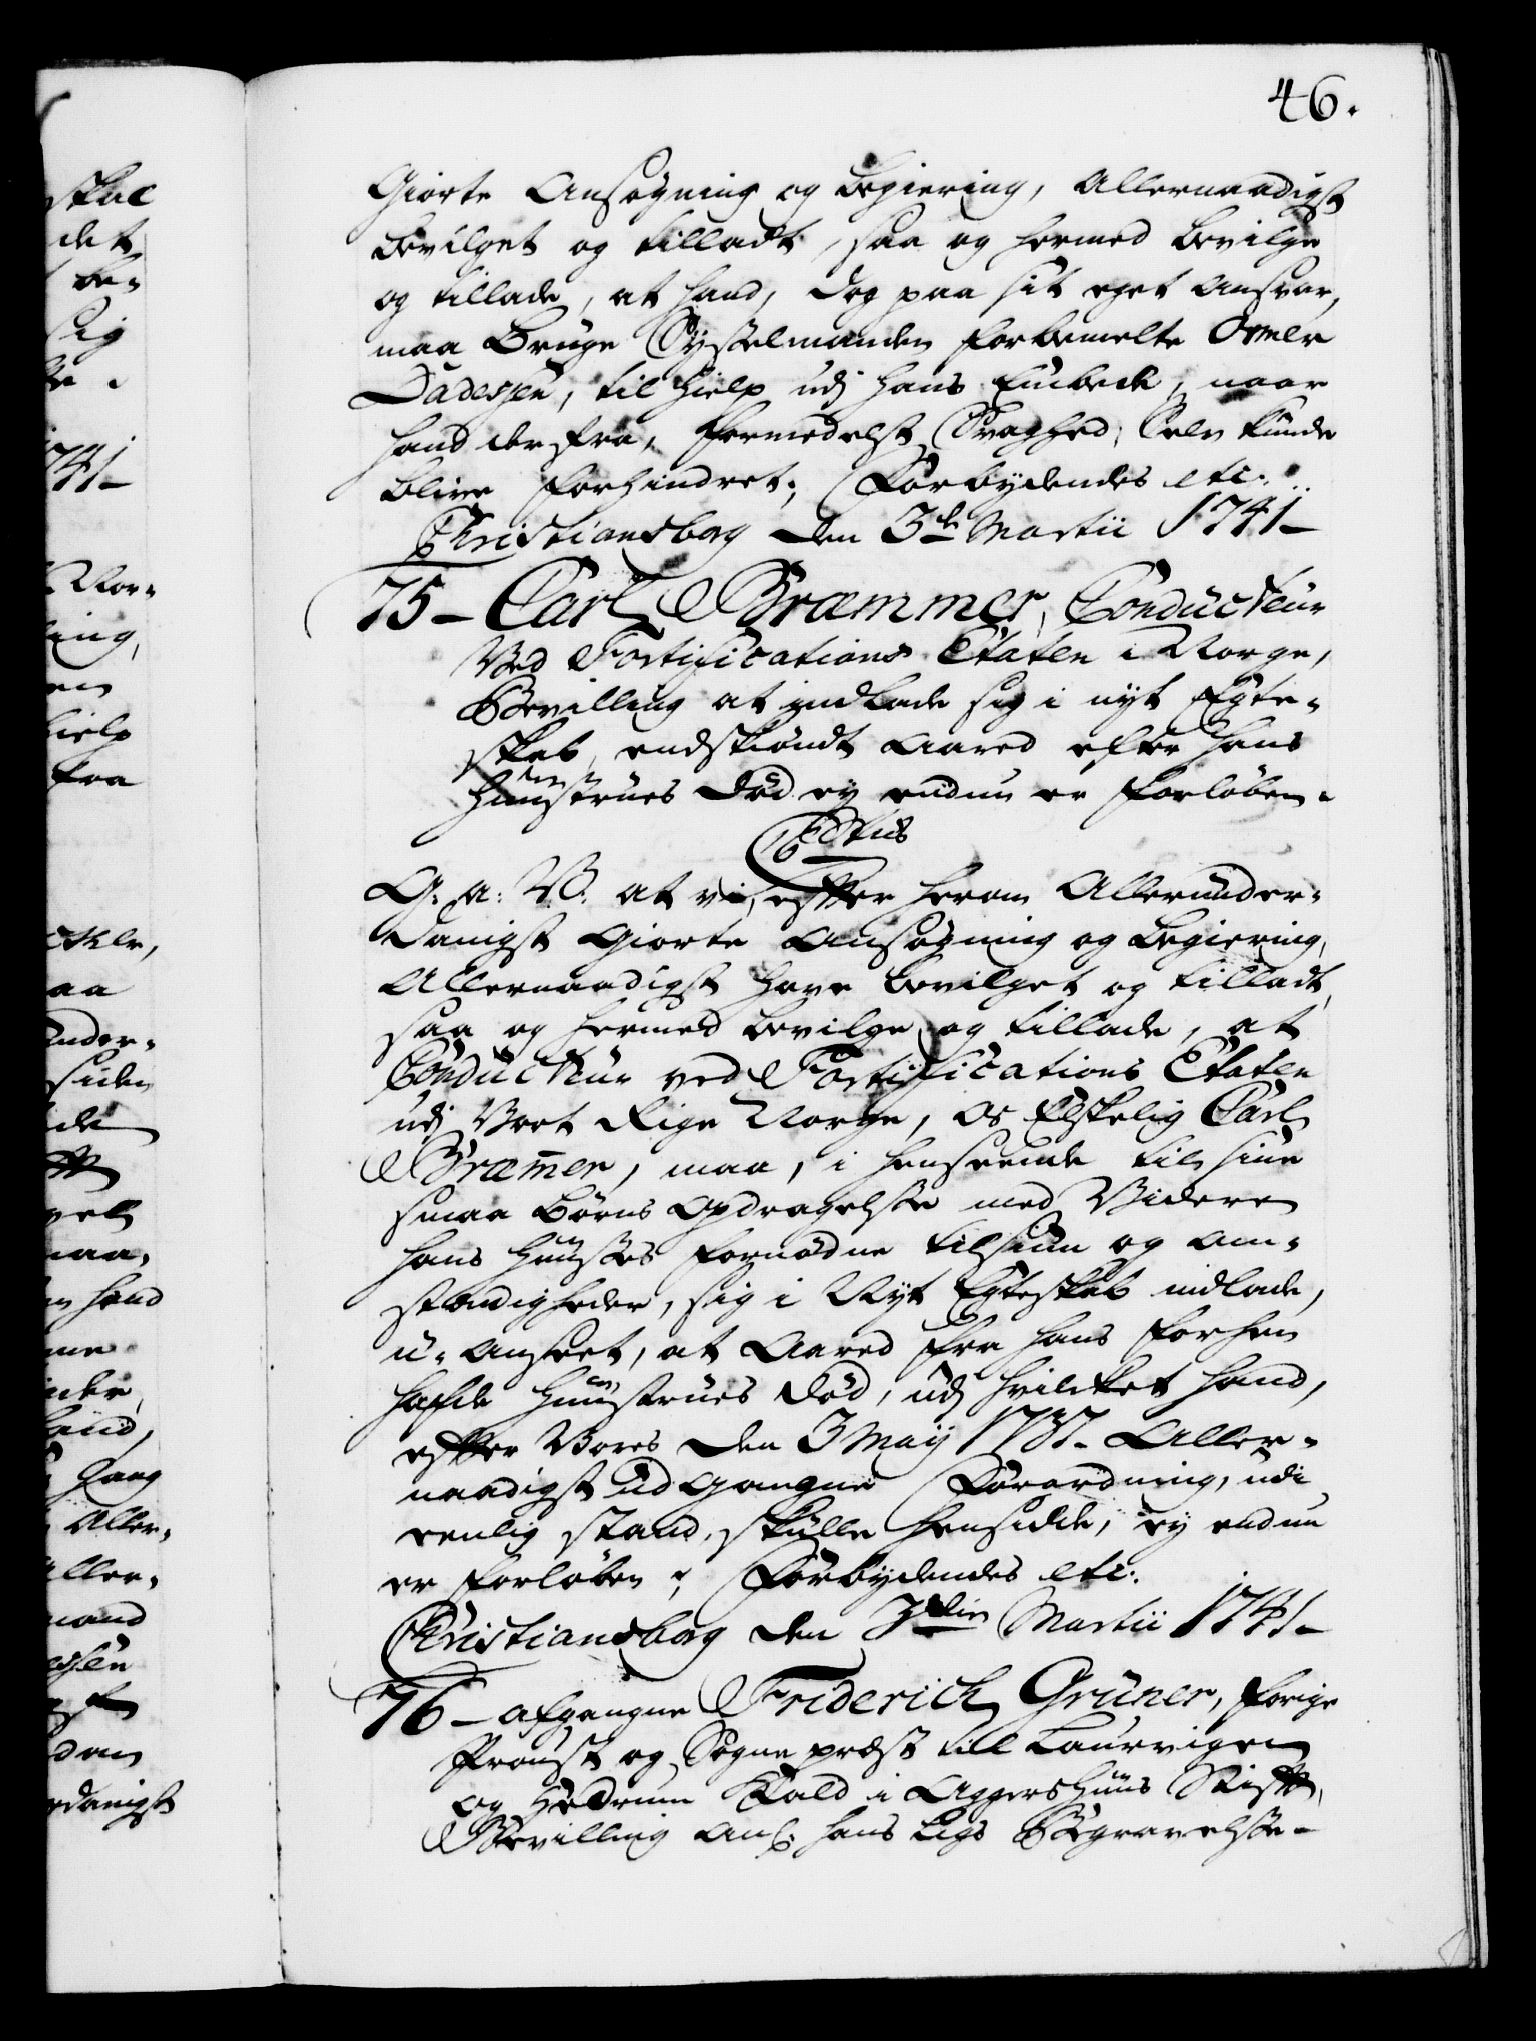 46.
Giorte Ansøgning og Begiering, Allernaadigst
bevilget og tilladt, saa og hermed bevilge
og tillade, at hand, dog paa sit eget Ansvar,
maa bruge Sysselmanden forbemelte Omer
Dadesjen, til hielp udj hans Embede, naar
hand derfra, formedelst Svaghed, Selv kunde
blive forhindret; Forbydendes etc:
Christiansborg den 3de Martii 1741-
75- Carl Bræmmer, Conducteur
Ved Fortifications Etaten i Norge,
Bevilling at indlade sig i nyt Egte-
skab, endskiøndt Aared efter hans
Huustrues død ey endnu er forløben.
C6tus
G: a: V: at vi, efter herom Allerunder-
danigst Giorte Ansøgning og Begiering,
Allernaadigst have bevilget og tilladt,
saa og hermed bevilge og tillade, at
Conducteur ved Fortifications Etaten
udj Vort Rige Norge, Os Elskelig Carl
Bræm̄er, maa, i henseende til sine
smaa Børns Opdragelse med Videre
hans Huuses fornødne tilsiun og om-
stændigheder, sig i Nyt Egteskab indlade,
u-anseet, at Aared fra hans forhen
hafde Huustrues død, udj hvilcket hand,
efter Vores den 3 Maij 1737. Aller-
naadigst udgangne Forordning, udi
eenlig stand, skulle hensidde, ey endnu
er forløben; Forbydendes etc:
Christiansborg den 3die Martii 1741-
76- afgangne Friderich Grüner, forige
Provst og Sogne præst till Laurvigen
og Hedrum Kald i Aggershuus Stift,
Bevilling anl: hans Ligs Begravelse-